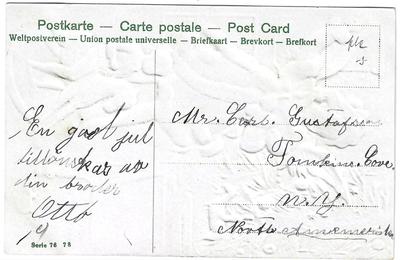 Postkarte — Carte postale — Post Card
Weltpostverein — Union postale universelle — Briefkaart — Brevkort — Brefkort
En god jul
tillönskas av
din broder
Otto
Mr. Carl Gustafson
Tomkins Cove
N.Y.
North Amerika
Serie 76 78